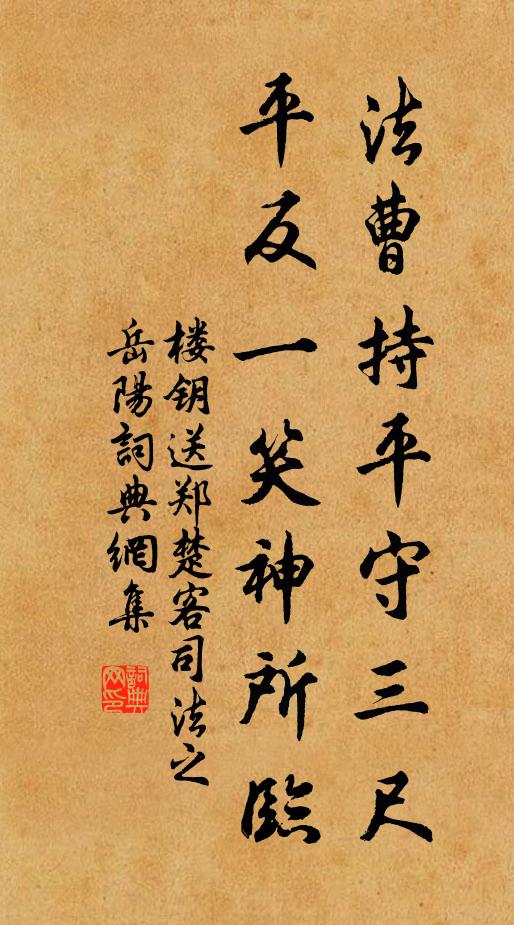 法曹持平守三尺
平反一笑神所臨
楼钥送郑楚客司法之
岳陽詞典網集
詞典网印